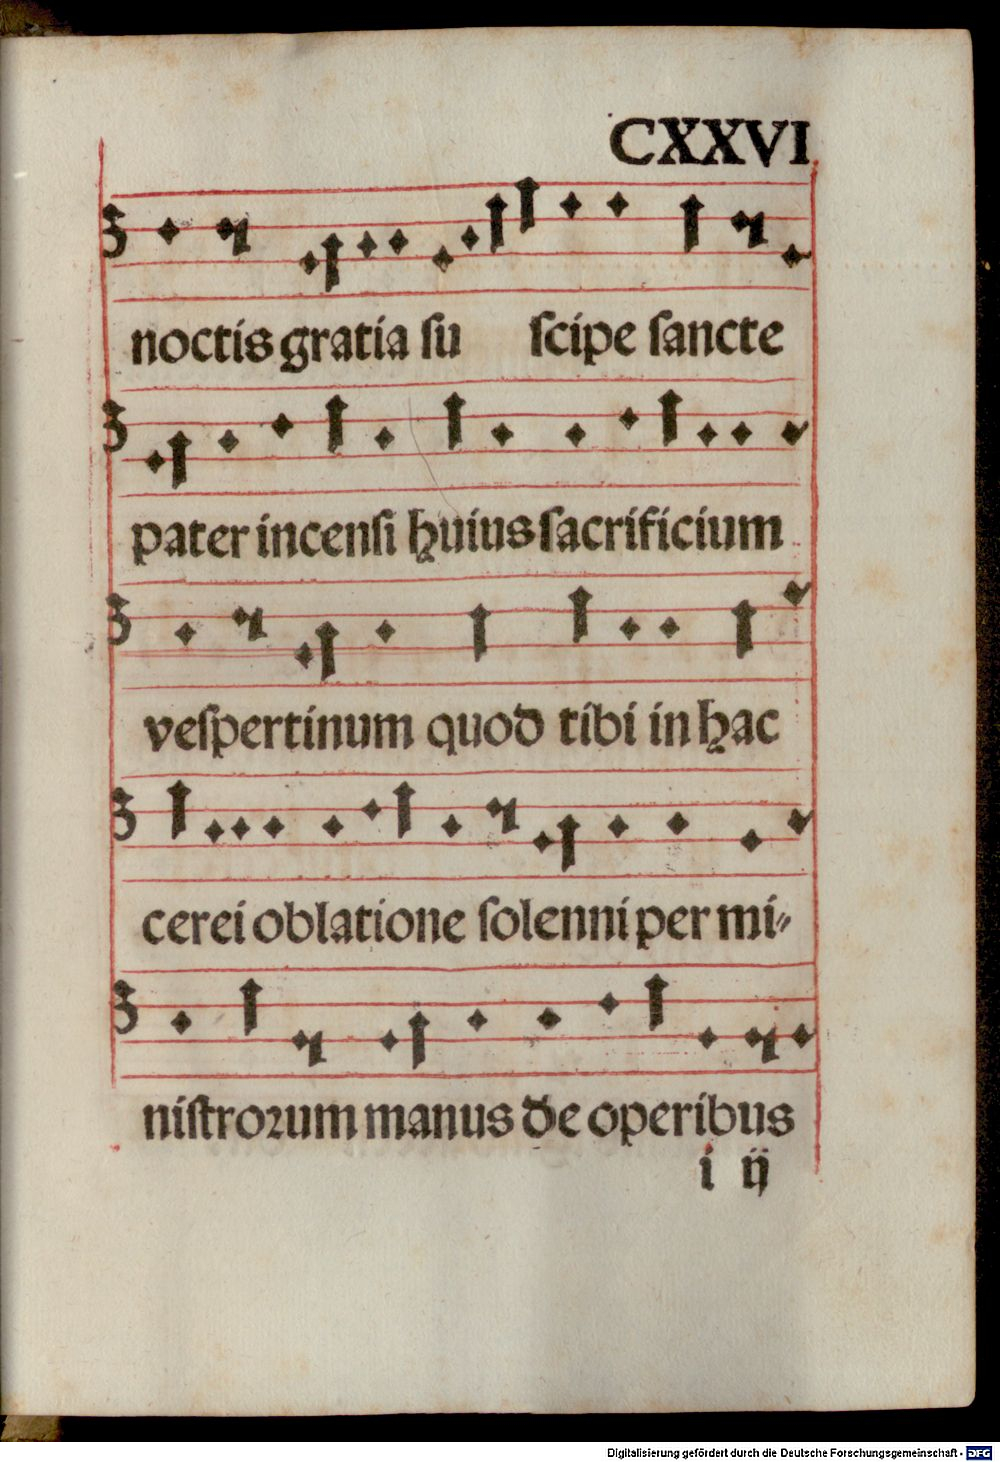 CXXVI
noctis gratia ſu ſcipe ſancte
pater incenſi huius ſacrificium
veſpertinum quod tibi in hac
cerei oblatione ſolenni per mi⸗
niſtroꝛum manus de operibus
i ij
Digitalisierung gefördert durch die Deutsche Forschungsgemeinschaft - DFG